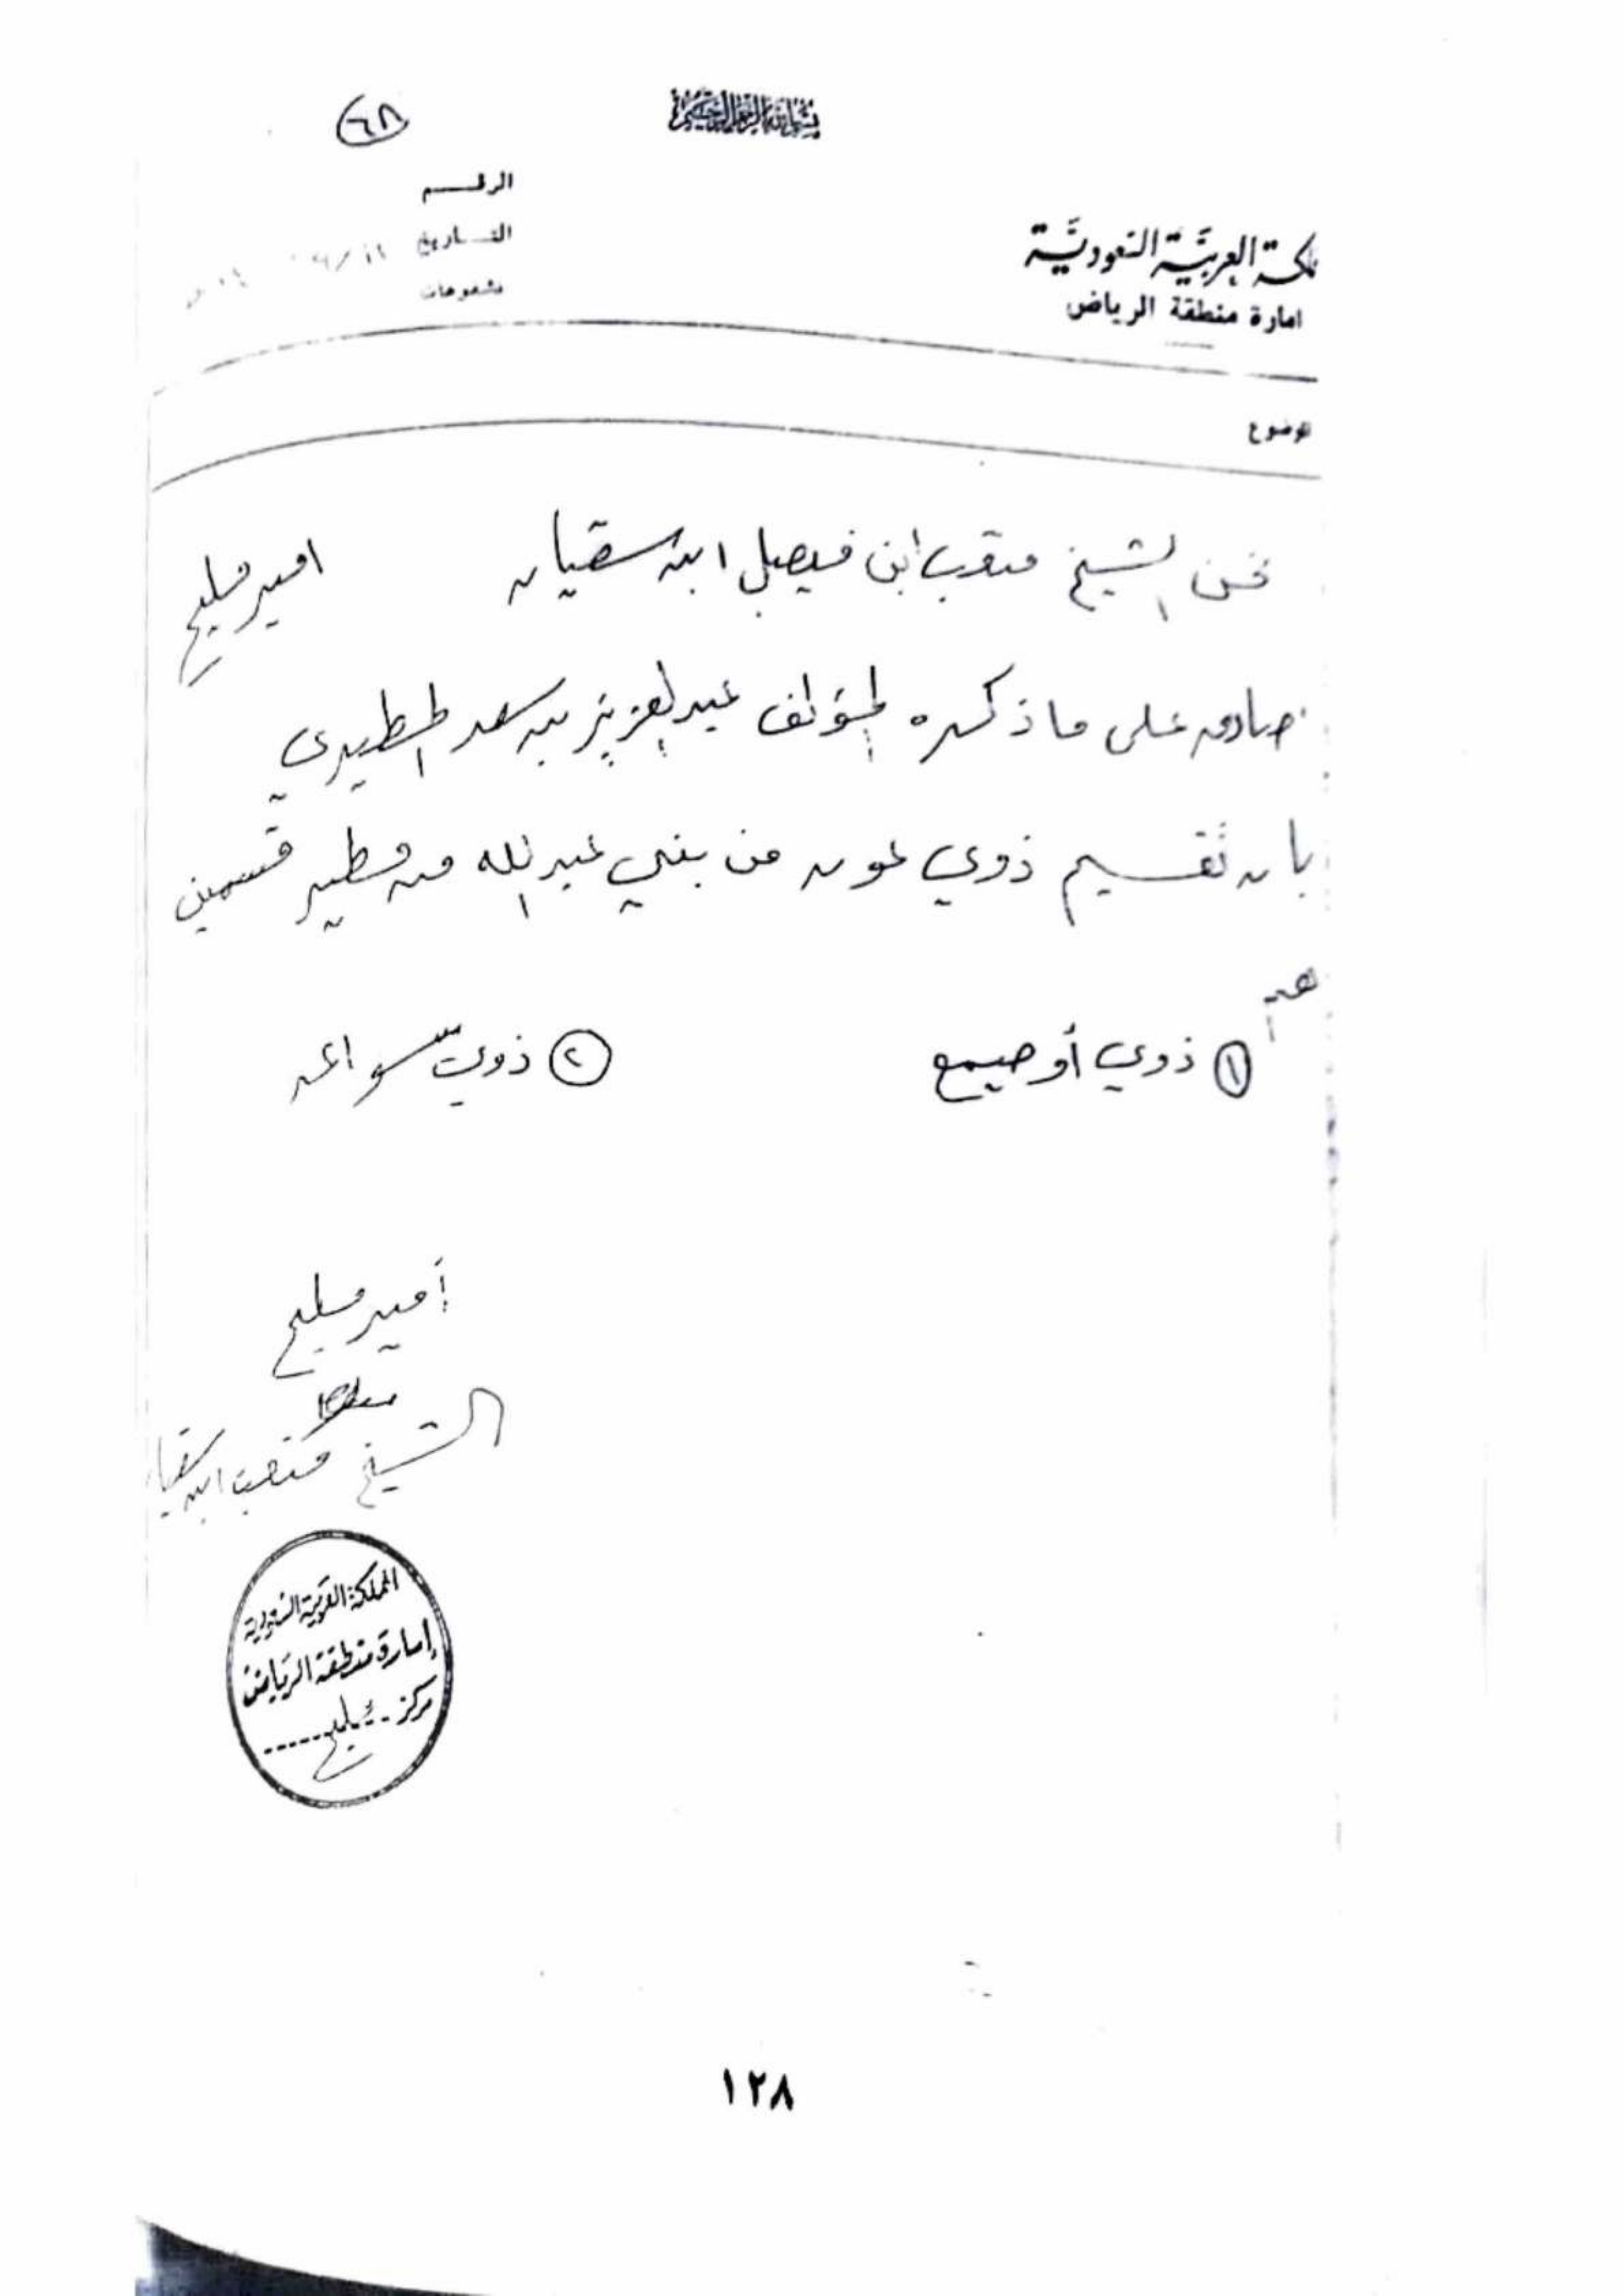 بسم الله الرحمن الرحيم
٦٨
الرقم
التاريخ
مشفوعات
لكة العربية السعودية
امارة منطقة الرياض
موضوع
نحن الشيخ متعب ابن فيصل ابن سقيان امير مليح
صادق على ما ذكره المؤلف عبدالعزيز بن سعد المطيري
بان تقسيم ذوي عون من بني عبدالله من مطير قسمين
هم
١ ذوي أوصيمع ٢ ذوي سواعد
أمير مليح
الشيخ متعب ابن سقيا
المملكة العربية السعودية
إمارة منطقة الرياض
مركز مليح
١٢٨